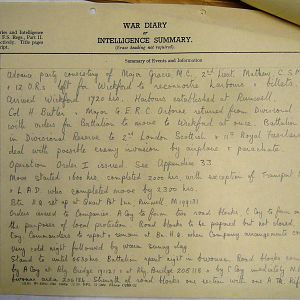 WAR DIARY
or
INTELLIGENCE SUMMARY.
(Erase heading not required).
Summary of Events and Information
Advance party consisting of Major Grace, M.C., 2nd Lieut. Mathew, C.S.M.
+ 12 O.R.s left for Wickford to reconnoitre harbours + billets
Arrived Wickford 1720 hrs. Harbours established at Runwell.
Col H Butler, Major G.E.R.C. Osborne returned from Divisional
with orders for Battalion to move to Wickford at once. Battalion
in Divisional Reserve to 2nd London Scottish + 11th Royal Fusiliers
deal with possible enemy invasion by airplane + parachute.
Operation Order I issued. See Appendix 33
Move started 1600 hrs, completed 2000 hrs with exception of Tranpt
+ L.A.D. who completed move by 2300 hrs.
Btn H.Q. set up at Quart Pot Inn, Runwell M199131
Orders issued to Companies. A Coy to form two road blocks, C Coy to form
the purposes of local protection. Road blocks to be prepared but not closed.
Commanders to report in person at Bn H.Q. when Company arrangements
Very cold night followed by warm sunny day.
Stand to until 0630 hrs. Battalion spent night in bivouac. Road blocks
by A Coy at Rly 191131 + at Rly Bridge 205118 + by C Coy immediately N.E.
bivouac area 201126. Strength of road blocks one section with one A.Tk Rifle